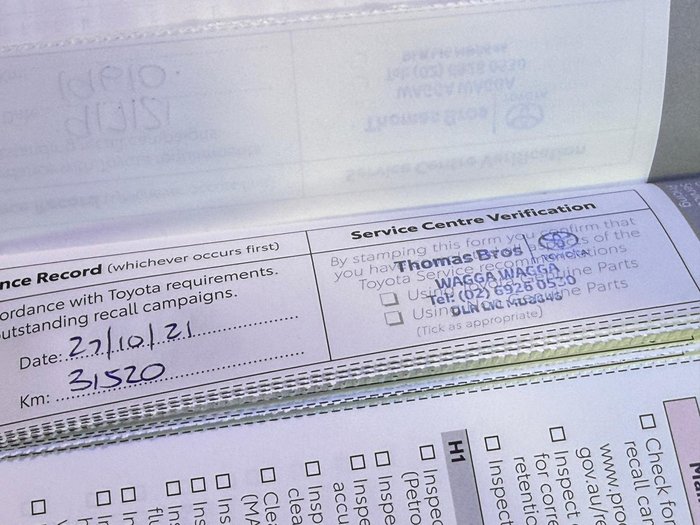 Service Centre Verification
nce Record (whichever occurs first)
ordance with Toyota requirements.
outstanding recall campaigns.
Date: 27/10/21
Km: 31520
By stamping this form you confirm that
you have of the
Toyota Service recommendations
Using Genuine Parts
Using Genuine Parts
(Tick as appropriate)
Thomas Bros
TOYOTA
WAGGA WAGGA
Tel: (02) 6926 0530
DLN LIC
H1
Check for
recall ca
www.pro
gov.au/r
Inspect
for corre
retenti
Inspect
Inspec
(Petro
Inspe
Inspe
accu
Insp
clea
Cle
(MA
Ins
Ins
In
flu
In